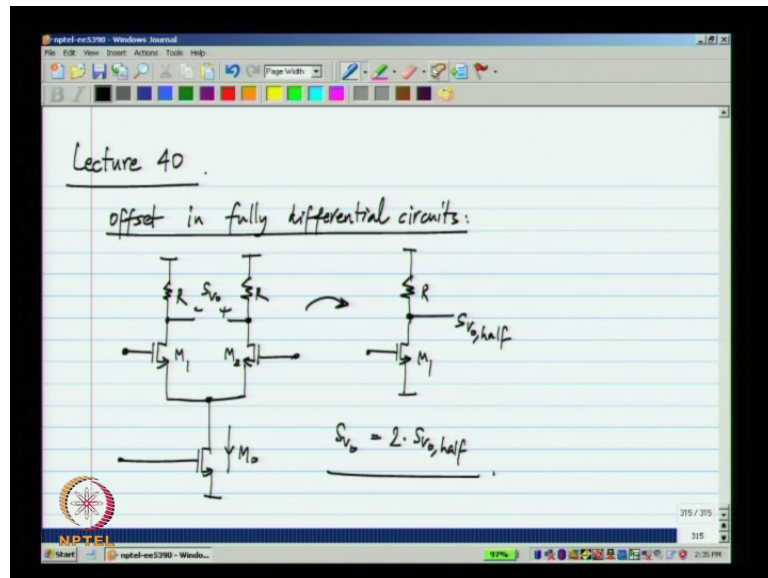 nptel-ee5390 - Windows Journal
File Edit View Insert Actions Tools Help
Page Width
B I
Lecture 40.
offset in fully differential circuits:
R Sv₀ R R
- +
Sv₀,half
M₁ M₂ M₁
M₀
Sv₀ = 2 · Sv₀,half
315 / 315
315
NPTEL
Start nptel-ee5390 - Windo... 97% 2:35 PM